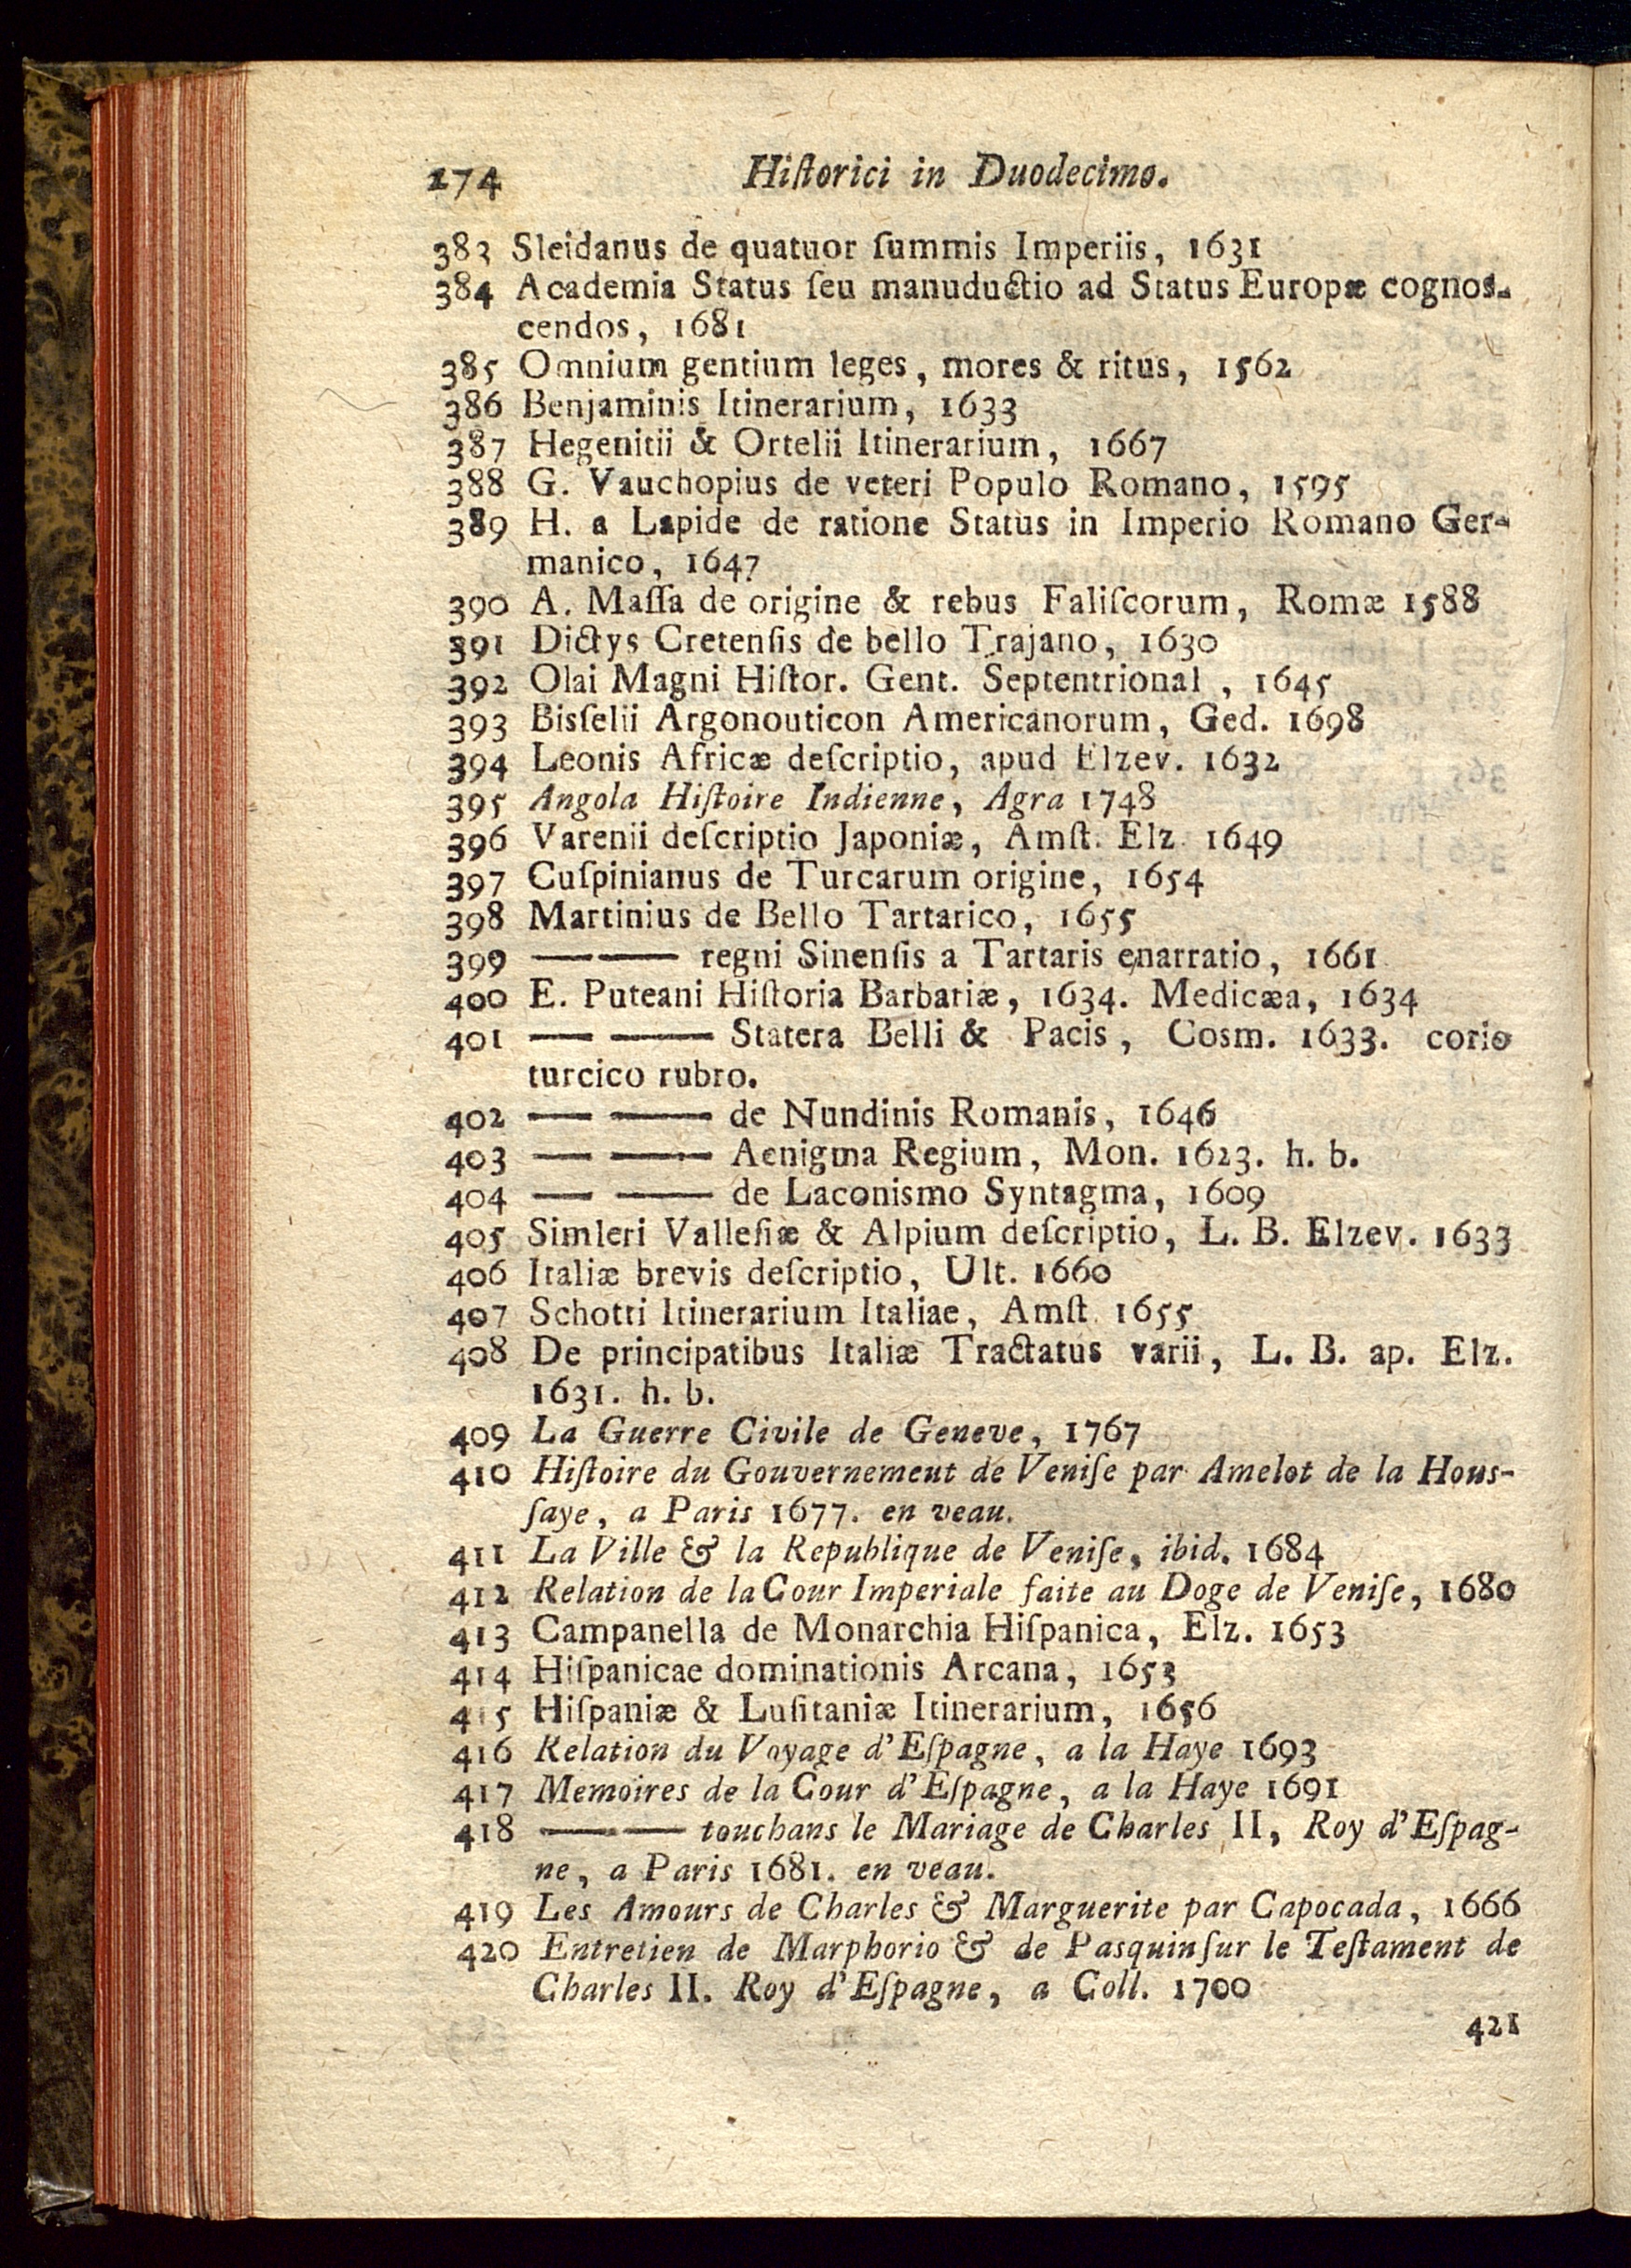 274 Hiſtorici in Duodecimo.
383 Sleidanus de quatuor ſummis Imperiis, 1631
384 Academia Status ſeu manuductio ad Status Europæ cognos-
cendos, 1681
385 Omnium gentium leges, mores & ritus, 1562
386 Benjaminis Itinerarium, 1633
387 Hegenitii & Ortelii Itinerarium, 1667
388 G. Vauchopius de veteri Populo Romano, 1595
389 H. a Lapide de ratione Status in Imperio Romano Ger-
manico, 1647
390 A. Maſſa de origine & rebus Faliſcorum, Romæ 1588
391 Dictys Cretenſis de bello Trajano, 1630
392 Olai Magni Hiſtor. Gent. Septentrional, 1645
393 Bisſelii Argonouticon Americanorum, Ged. 1698
394 Leonis Africæ deſcriptio, apud Elzev. 1632
395 Angola Hiſtoire Indienne, Agra 1748
396 Varenii deſcriptio Japoniæ, Amſt. Elz. 1649
397 Cuſpinianus de Turcarum origine, 1654
398 Martinius de Bello Tartarico, 1655
399 —— —— regni Sinenſis a Tartaris enarratio, 1661
400 E. Puteani Hiſtoria Barbariæ, 1634. Medicæa, 1634
401 —— —— Statera Belli & Pacis, Cosm. 1633. corio
turcico rubro.
402 —— —— de Nundinis Romanis, 1646
403 —— —— Aenigma Regium, Mon. 1623. h. b.
404 —— —— de Laconismo Syntagma, 1609
405 Simleri Valleſiæ & Alpium deſcriptio, L. B. Elzev. 1633
406 Italiæ brevis deſcriptio, Ult. 1660
407 Schotti Itinerarium Italiae, Amſt. 1655
408 De principatibus Italiæ Tractatus varii, L. B. ap. Elz.
1631. h. b.
409 La Guerre Civile de Geneve, 1767
410 Hiſtoire du Gouvernement de Veniſe par Amelot de la Hous-
ſaye, a Paris 1677. en veau.
411 La Ville & la Republique de Veniſe, ibid. 1684
412 Relation de la Cour Imperiale faite au Doge de Veniſe, 1680
413 Campanella de Monarchia Hiſpanica, Elz. 1653
414 Hiſpanicae dominationis Arcana, 1653
415 Hiſpaniæ & Luſitaniæ Itinerarium, 1656
416 Relation du Voyage d'Eſpagne, a la Haye 1693
417 Memoires de la Cour d'Eſpagne, a la Haye 1691
418 —— —— touchans le Mariage de Charles II, Roy d'Eſpag-
ne, a Paris 1681. en veau.
419 Les Amours de Charles & Marguerite par Capocada, 1666
420 Entretien de Marphorio & de Pasquin ſur le Teſtament de
Charles II. Roy d'Eſpagne, a Coll. 1700
421